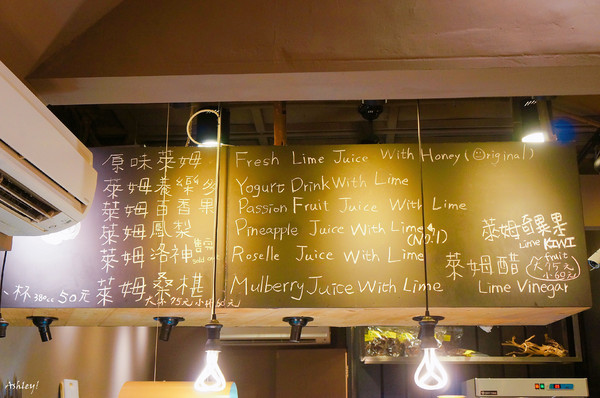 原味萊姆 Fresh Lime Juice With Honey (Original)
萊姆養樂多 Yogurt Drink With Lime
萊姆百香果 Passion Fruit Juice With Lime
萊姆鳳梨 Pineapple Juice With Lime (No.1)
萊姆洛神 Roselle Juice With Lime
萊姆桑椹 Mulberry Juice With Lime
大杯75元小杯60元
一杯380cc50元
萊姆奇異果
Lime KIWI
fruit
萊姆醋
大75元
小60元
Lime Vinegar
Ashley!